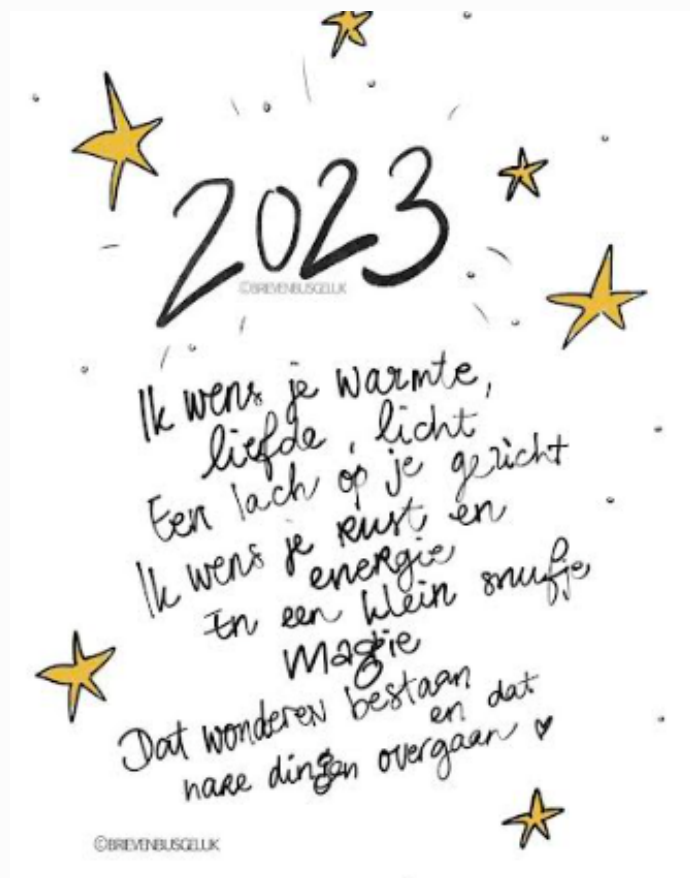 2023
©BRIEVENBUSGELUK
Ik wens je warmte,
liefde, licht
Een lach op je gezicht
Ik wens je rust en
energie
En een klein snufje
magie
Dat wonderen bestaan
en dat
nare dingen overgaan
©BRIEVENBUSGELUK